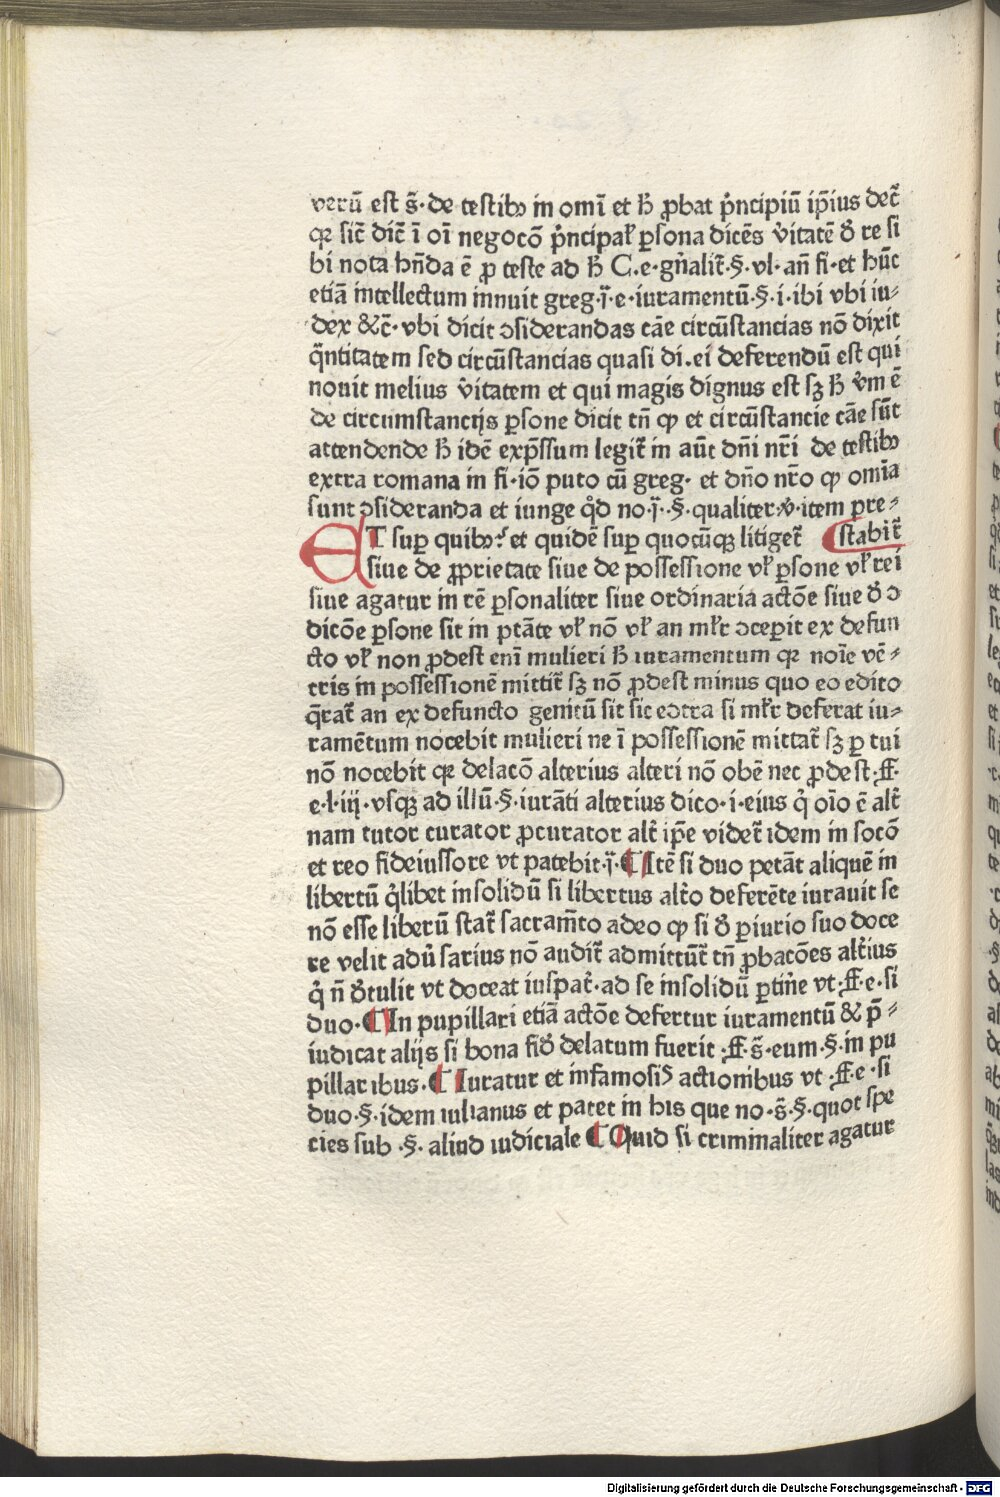 verū est s̄·de testibꝫ in omī et h̄ ꝓbat p̄ncipiū ip̄ius dec̄
qꝛ sic̄ dic̄ ī oī negocō p̄ncipal̄ ꝑsona dicēs v̄itatē d̄ re si
bi nota hn̄da ē ꝓ teste ad h̄ C.e·gn̄alit̄·§·vl·an̄ fi·et hūc
etiā intellectum innuit greg·j̄·e·iuramentū·§·i·ibi vbi iu⸗
dex ⁊c̄·vbi dicit ↄsiderandas cāe circūstancias nō dixit
q̄ntitatem sed circūstancias quasi di.ei deferendū est qui
nouit melius v̄itatem et qui magis dignus est sꝫ h̄ v̄m ē
de circumstancijs ꝑsone dicit tn̄ ꝙ et circūstancie cāe sūt
attendende h̄ idē exp̄ssum legit̄ in aūt dn̄i nr̄i de testibꝫ
extra romana in fi·iō puto cū greg· et dn̄o nr̄o ꝙ omīa
sunt ↄsideranda et iunge qd̄ no·j̄··§·qualiter·v̄·item pre⸗
ET suꝑ quibꝫ? et quidē suꝑ quocūqꝫ litiget̄ stabit̄
siue de ꝓprietate siue de possessione vl̄ ꝑsone vl̄ rei
siue agatur in rē ꝑsonaliter siue ordinaria actōe siue d̄ ↄ
dicōe ꝑsone sit in ptāte vl̄ nō vl̄ an ml̄r ↄceperit ex defun
cto vl̄ non ꝓdest enī mulieri h̄ iuramentum qꝛ noīe vē⸗
tris in possessionē mittit̄ sꝫ nō ꝓdest minus quo eo edito
q̄rat̄ an ex defuncto genitū sit sic eↄtra si ml̄r deferat iu⸗
ramētum nocebit mulieri ne ī possessionē mittat̄ sꝫ ꝑ tui
nō nocebit qꝛ delacō alterius alteri nō obē nec ꝓdest·ff·
e·l·iij·vsqꝫ ad illū·§·iurāti alterius dico·i·eius q̄ oīo ē alt̄
nam tutor curator ꝓcurator alt̄ ip̄e videt̄ idem in socō
et reo fideiussore vt patebit·j̄·¶ Itē si duo petāt aliquē in
libertū q̄libet insolidū si libertus alt̄o deferēte iurauit se
nō esse liberū stat̄ sacram̄to adeo ꝙ si d̄ ꝑiurio suo doce
re velit adū sarius nō audit̄ admittūt̄ tn̄ ꝓbacōes alt̄ius
q̄ n̄ d̄tulit vt doceat iuspat̄·ad se insolidū ꝑtin̄e vt·ff·e·si
duo·¶ In pupillari etiā actōe defertur iuramentū ⁊ p̄⸗
iudicat alijs si bona fid̄ delatum fuerit·ff·s̄·eum·§·in pu
pillaribus·¶ Iuratur et infamosis actionibus vt·ff·e·si
duo·§·idem iulianus et patet in his que no·s̄·§·quot spe
cies sub·§·aliud iudiciale ¶ Quid si criminaliter agatur
Digitalisierung gefördert durch die Deutsche Forschungsgemeinschaft - DFG